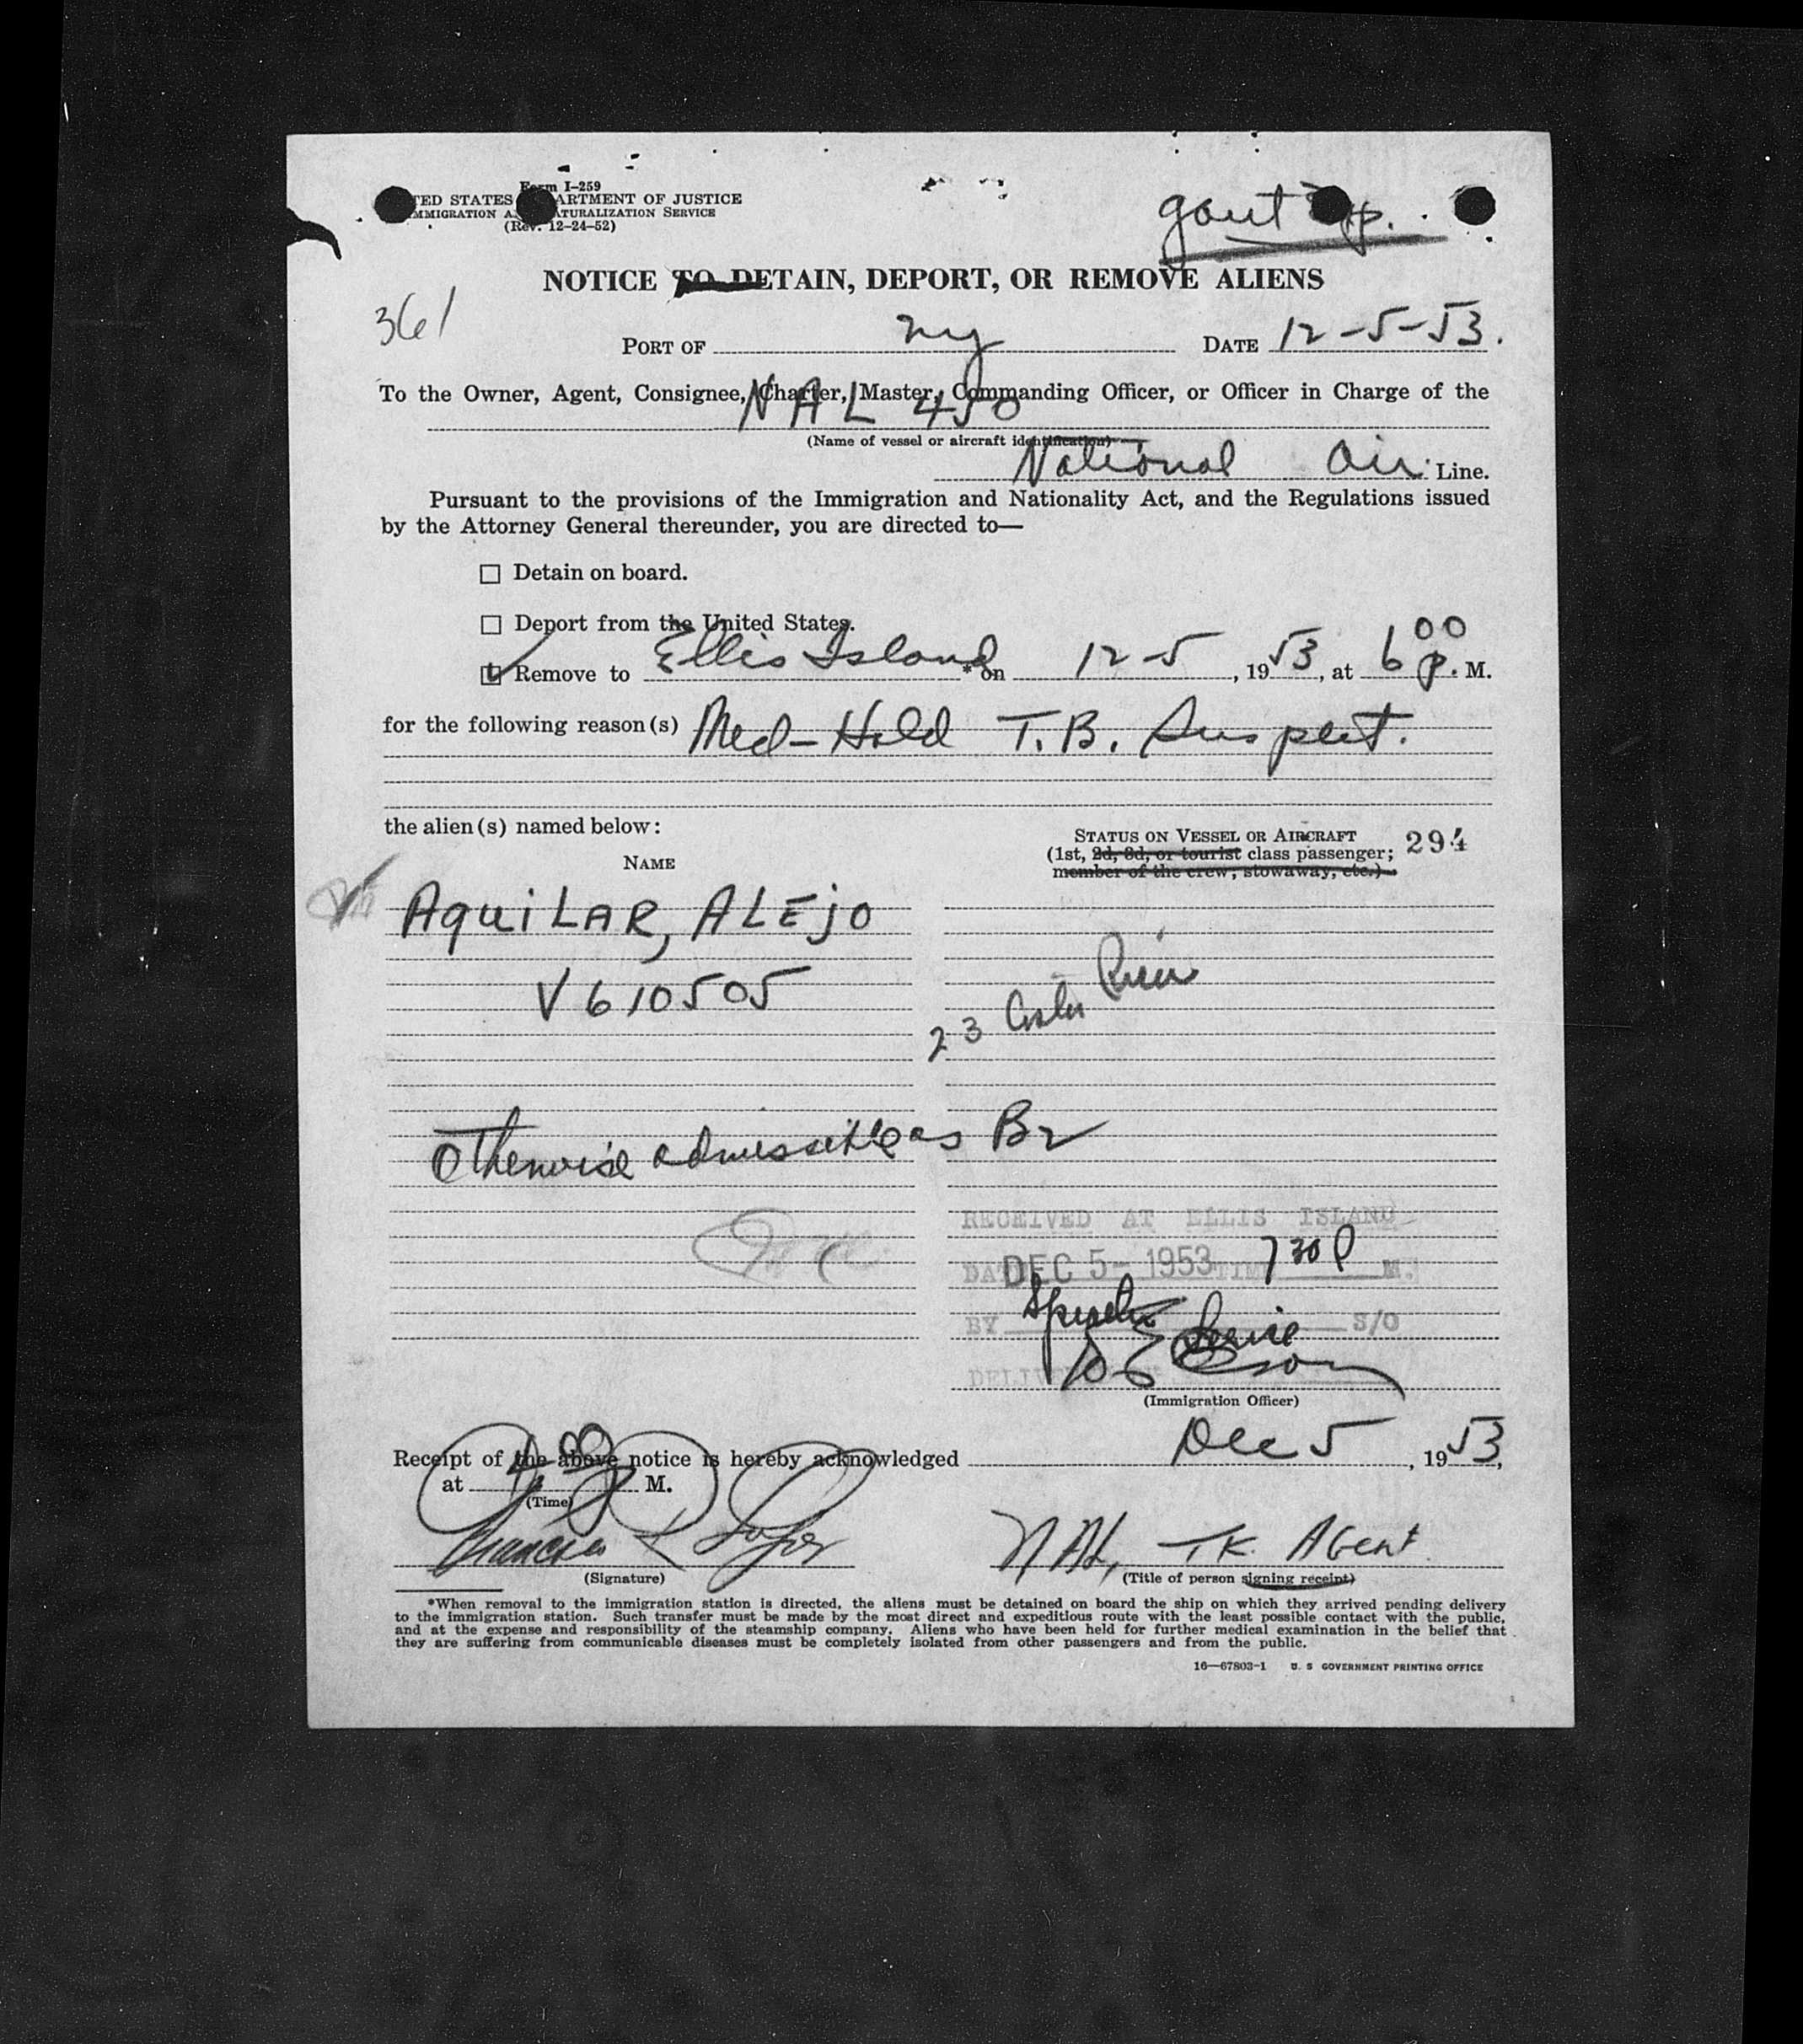 Form I-259
UNITED STATES DEPARTMENT OF JUSTICE
IMMIGRATION AND NATURALIZATION SERVICE
(Rev. 12-24-52)
NOTICE TO DETAIN, DEPORT, OR REMOVE ALIENS
361
PORT OF ny DATE 12-5-53.
To the Owner, Agent, Consignee, Charter, Master, Commanding Officer, or Officer in Charge of the
NAL 450
(Name of vessel or aircraft identification)
National Air Line.
Pursuant to the provisions of the Immigration and Nationality Act, and the Regulations issued
by the Attorney General thereunder, you are directed to—
Detain on board.
Deport from the United States.
Remove to Ellis Island * on 12-5, 1953, at 6 00 P. M.
for the following reason(s) Med-Hold T.B. Suspect.
the alien(s) named below:
STATUS ON VESSEL OR AIRCRAFT
(1st, 2d, 3d, or tourist class passenger; 294
member of the crew; stowaway, etc.)
NAME
AquiLAR, ALEjo
V610505
23
Otherwise admissible as B2
RECEIVED AT ELLIS ISLAND
DATE DEC 5- 1953 TIME 730 P M.
BY S/O
(Immigration Officer)
Receipt of the above notice is hereby acknowledged Dec 5, 1953,
at M.
(Time)
NAL, TK. AGent.
(Signature) (Title of person signing receipt)
*When removal to the immigration station is directed, the aliens must be detained on board the ship on which they arrived pending delivery
to the immigration station. Such transfer must be made by the most direct and expeditious route with the least possible contact with the public,
and at the expense and responsibility of the steamship company. Aliens who have been held for further medical examination in the belief that
they are suffering from communicable diseases must be completely isolated from other passengers and from the public.
16—67803-1 U. S GOVERNMENT PRINTING OFFICE